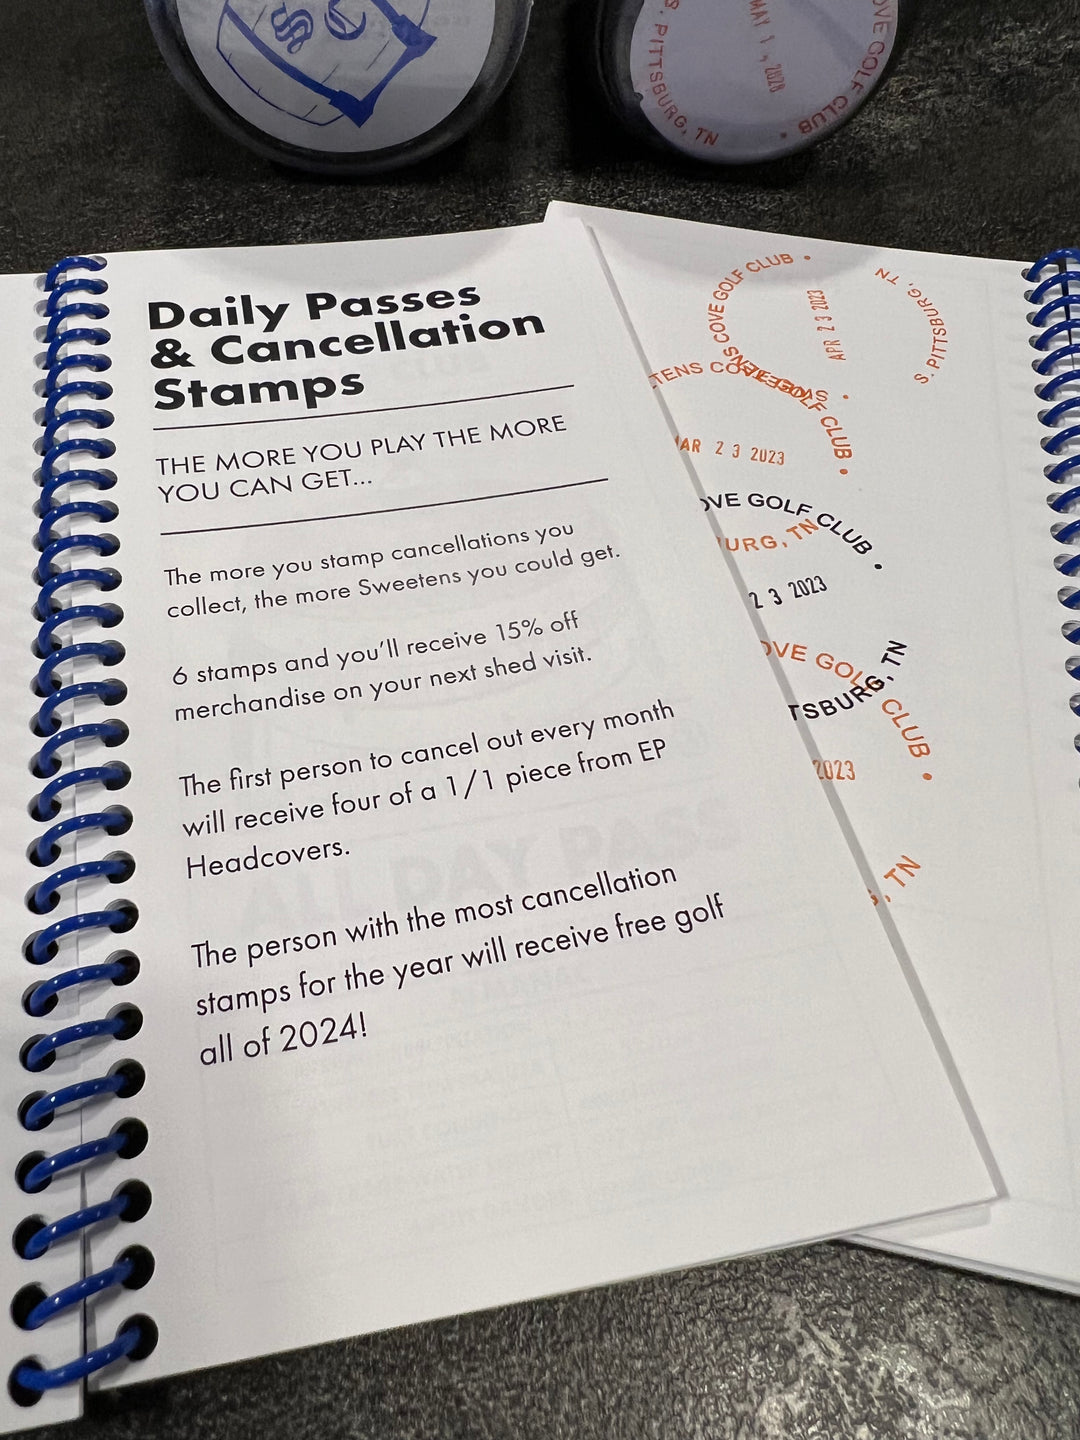 S C
S. PITTSBURG, TN
MAY 1, 2028
OVE GOLF CLUB •
Daily Passes
& Cancellation
Stamps
THE MORE YOU PLAY THE MORE
YOU CAN GET...
The more you stamp cancellations you
collect, the more Sweetens you could get.
6 stamps and you'll receive 15% off
merchandise on your next shed visit.
The first person to cancel out every month
will receive four of a 1/1 piece from EP
Headcovers.
The person with the most cancellation
stamps for the year will receive free golf
all of 2024!
SWEETENS COVE GOLF CLUB •
APR 23 2023
S. PITTSBURG, TN
TENS COVE GOLF CLUB •
AR 23 2023
URG, TN
OVE GOLF CLUB •
23 2023
TSBURG, TN
OVE GOLF CLUB •
2023
, TN
ALL DAY PASS